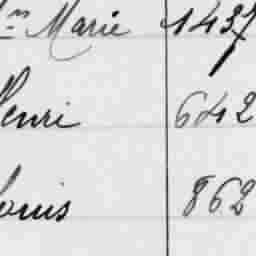 Marie 1437
Henri 642
Louis 862